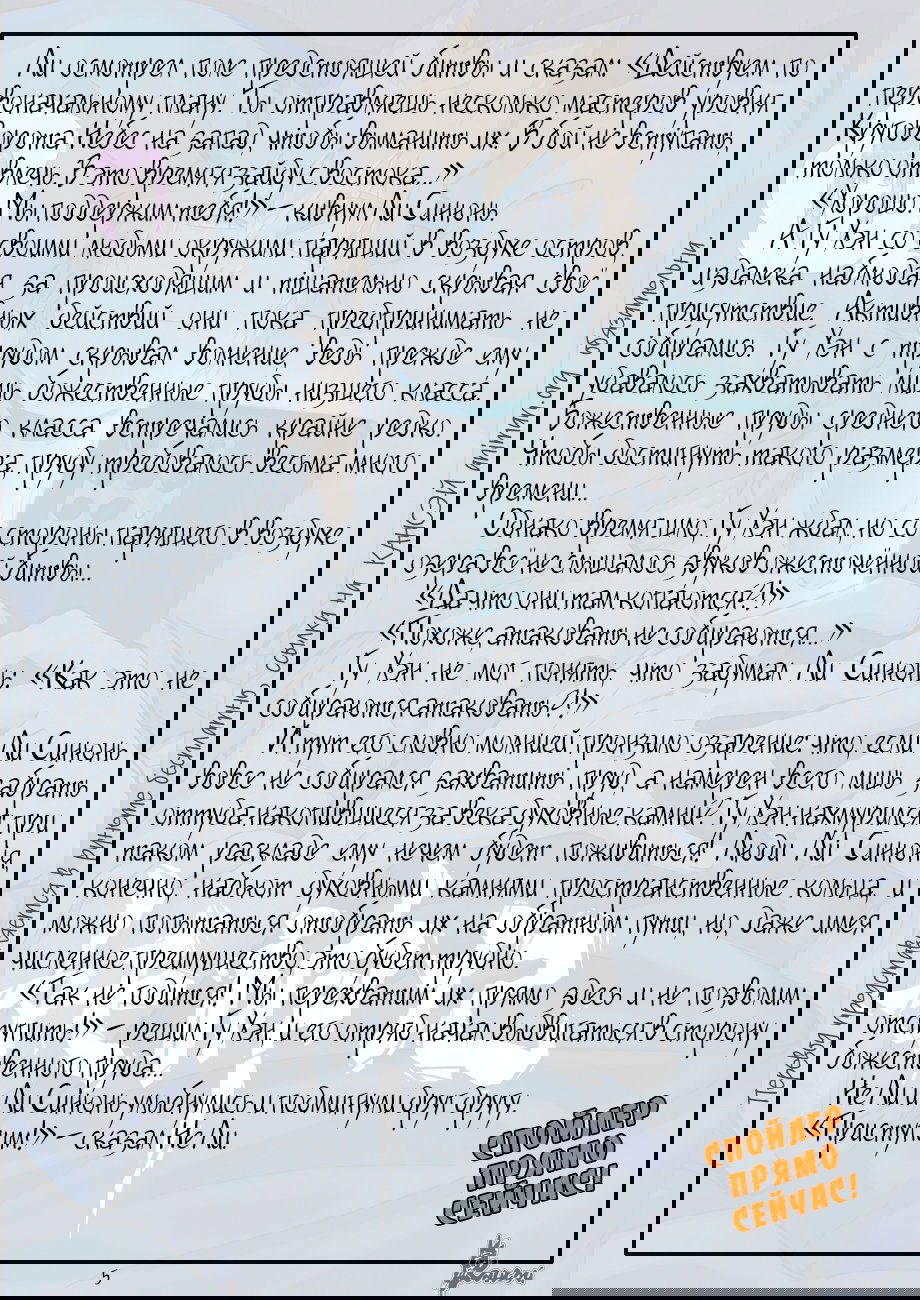 Ли осмотрел поле предстоящей битвы и сказал: «Действуем по
первоначальному плану. Ты отправляешь несколько мастеров уровня
Круговорота Небес на запад, чтобы выманить их. В бой не вступать,
только отвлечь. В это время я зайду с востока...»
«Хорошо! Мы поддержим тебя!» – кивнул Ли Синюнь
А Гу Хан со своими людьми окружили парящий в воздухе остров,
издалека наблюдая за происходящим и тщательно скрывая своё
присутствие. Активных действий они пока предпринимать не
собирались. Гу Хан с трудом скрывал волнение, ведь прежде ему
удавалось захватывать лишь божественные пруды низшего класса.
Божественные пруды среднего класса встречались крайне редко.
Чтобы достигнуть такого размера, пруду требовалось весьма много
времени...
Однако время шло. Гу Хан ждал, но со стороны парящего в воздухе
озера всё не слышалось звуков ожесточённой битвы...
«Да что они там копаются?!»
«Похоже, атаковать не собираются...»
Гу Хан не мог понять, что задумал Ли Синюнь: «Как это не
собираются атаковать?!»
И тут его словно молнией пронзило озарение: что, если Ли Синюнь
вовсе не собирался захватывать пруд, а намерен всего лишь забрать
оттуда накопившиеся за века духовные камни? Гу Хан нахмурился: при
таком раскладе ему нечем будет поживиться! Люди Ли Синюня,
конечно, набьют духовными камнями пространственные кольца, и
можно попытаться отобрать их на обратном пути, но, даже имея
численное преимущество, это будет трудно.
«Так не годится! Мы перехватим их прямо здесь и не позволим
отступить!» – решил Гу Хан. И его отряд начал выдвигаться в сторону
божественного пруда...
Не Ли и Ли Синюнь улыбнулись и подмигнули друг другу.
«Приступим!» – сказал Не Ли.
СПОЙЛЕР
ПРЯМО
СЕЙЧАС!
СПОЙЛЕР
ПРЯМО
СЕЙЧАС!
5